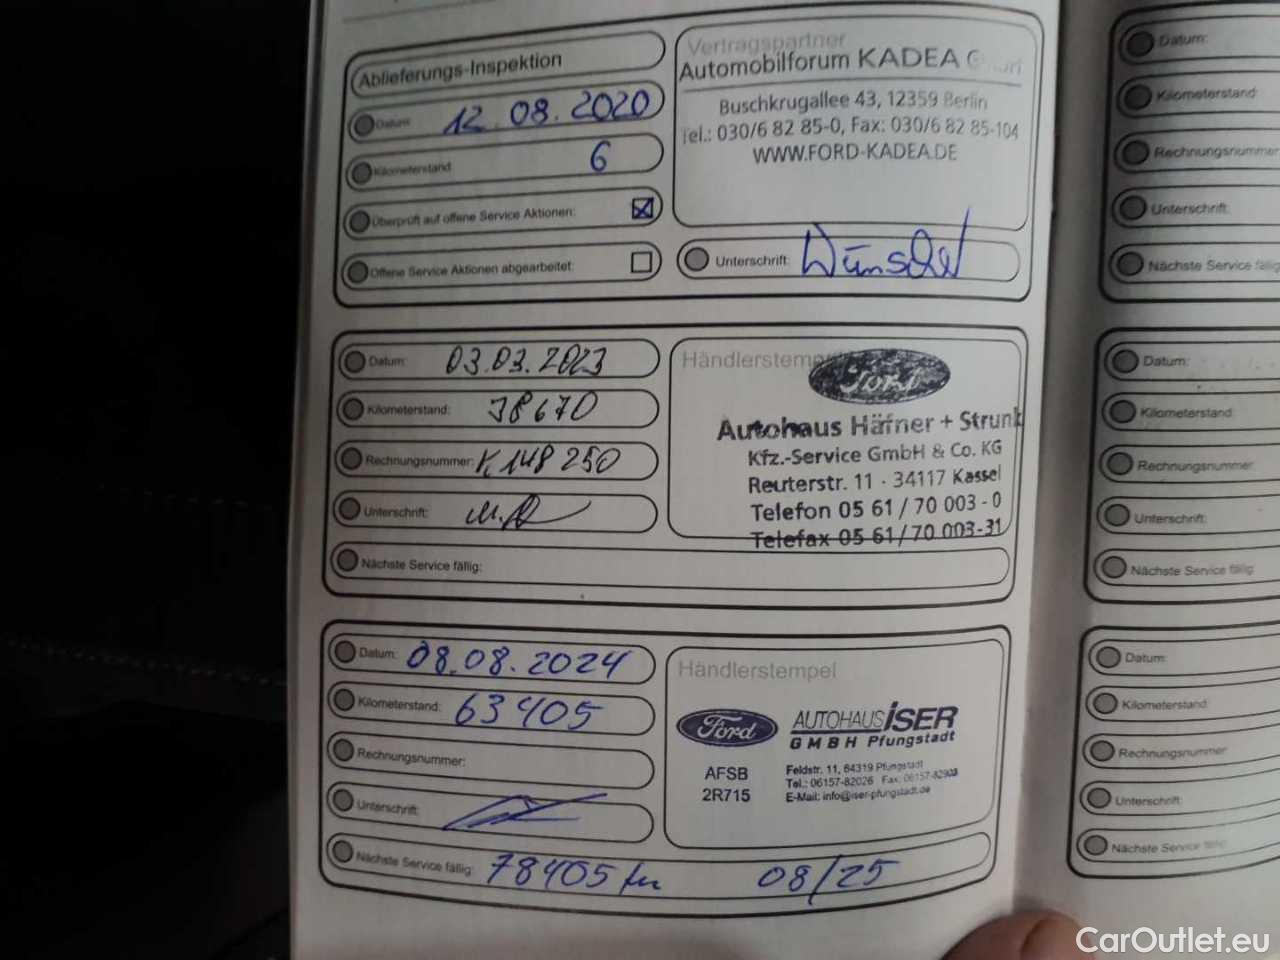 Ablieferungs-Inspektion
Datum: 12.08.2020
Kilometerstand: 6
Überprüft auf offene Service Aktionen:
Offene Service Aktionen abgearbeitet:
Vertragspartner
Automobilforum KADEA GmbH
Buschkrugallee 43, 12359 Berlin
Tel.: 030/6 82 85-0, Fax: 030/6 82 85-104
WWW.FORD-KADEA.DE
Unterschrift:
Datum: 03.03.2023
Kilometerstand: 38670
Rechnungsnummer: K148250
Unterschrift:
Nächste Service fällig:
Händlerstempel
Ford
Autohaus Häfner + Strunk
Kfz.-Service GmbH & Co. KG
Reuterstr. 11 - 34117 Kassel
Telefon 05 61 / 70 003 - 0
Telefax 05 61 / 70 003-31
Datum: 08.08.2024
Kilometerstand: 63405
Rechnungsnummer:
Unterschrift:
Nächste Service fällig: 78405 km 08/25
Händlerstempel
Ford
AUTOHAUS ISER
GMBH Pfungstadt
AFSB
2R715
Feldstr. 11, 64319 Pfungstadt
Tel.: 06157-82026 Fax: 06157-82903
E-Mail: info@iser-pfungstadt.de
Datum:
Kilometerstand:
Rechnungsnummer:
Unterschrift:
Nächste Service fällig
Datum:
Kilometerstand:
Rechnungsnummer:
Unterschrift:
Nächste Service fällig
Datum:
Kilometerstand:
Rechnungsnummer:
Unterschrift:
Nächste Service fällig:
CarOutlet.eu